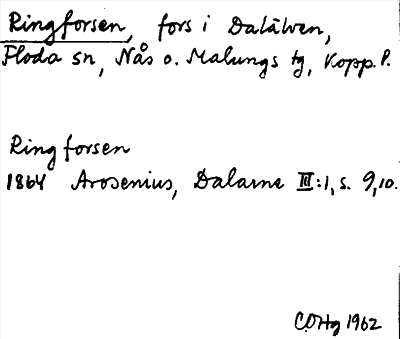 Ringforsen, fors i Dalälven,
Floda sn, Nås o. Malungs tg, Kopp. l.
Ringforsen
1864 Arosenius, Dalarne III:1, s. 9,10.
C.O.Hg 1962